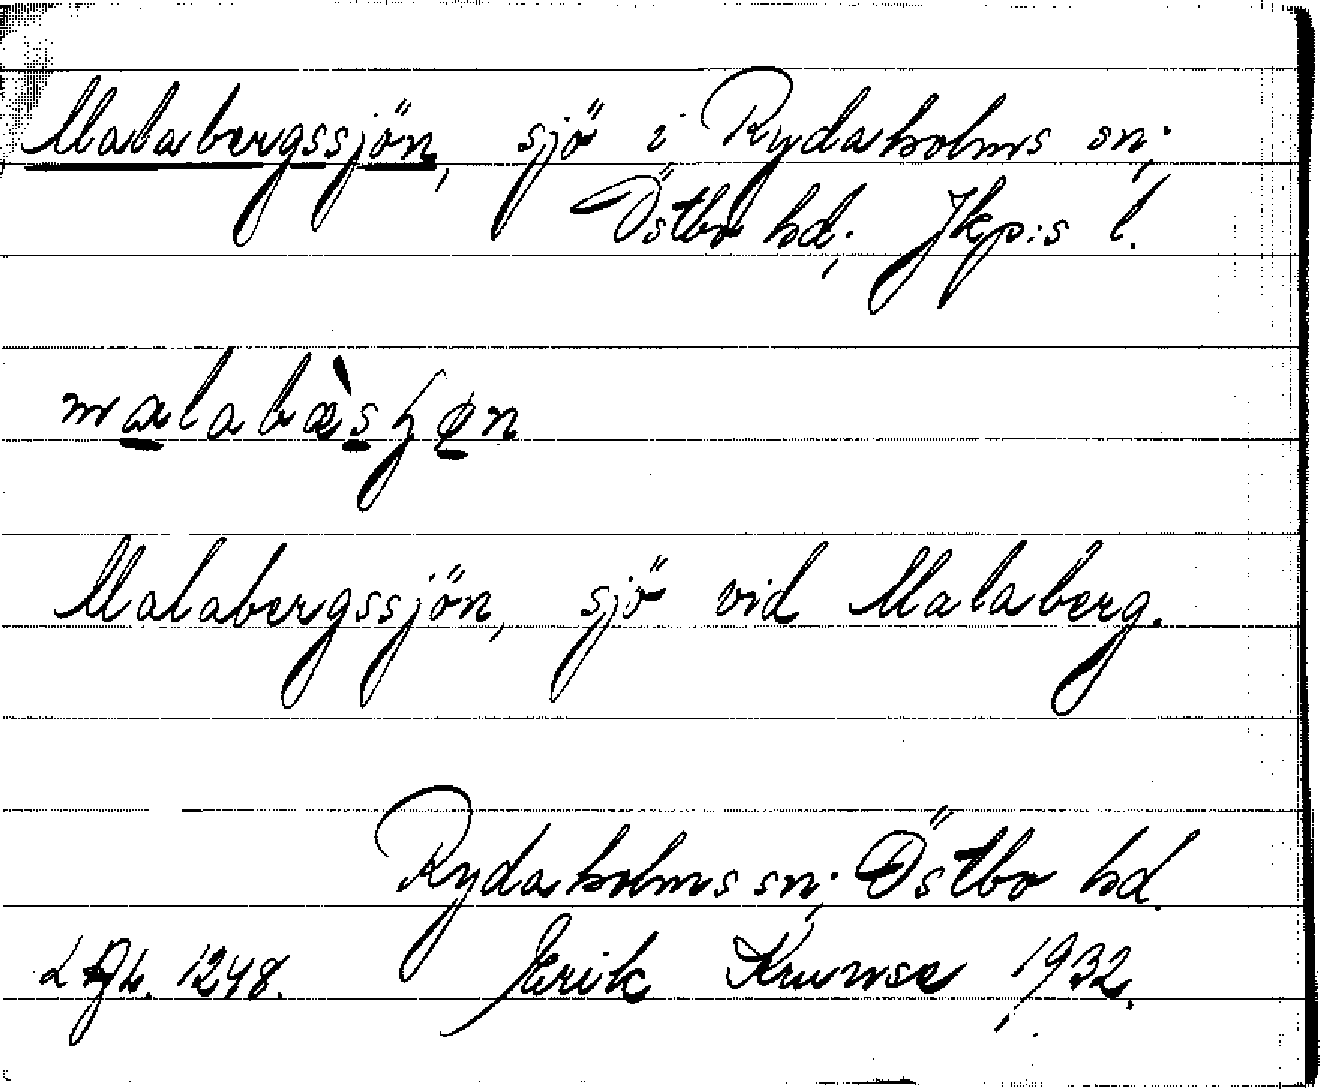 Malabergssjön, sjö i Rydaholms sn;
Östbo hd; Jkp:s l.
malabæ̀sʃøn
Malabergssjön, sjö vid Malaberg.
Rydaholms sn; Östbo hd.
1248. Erik 1932.